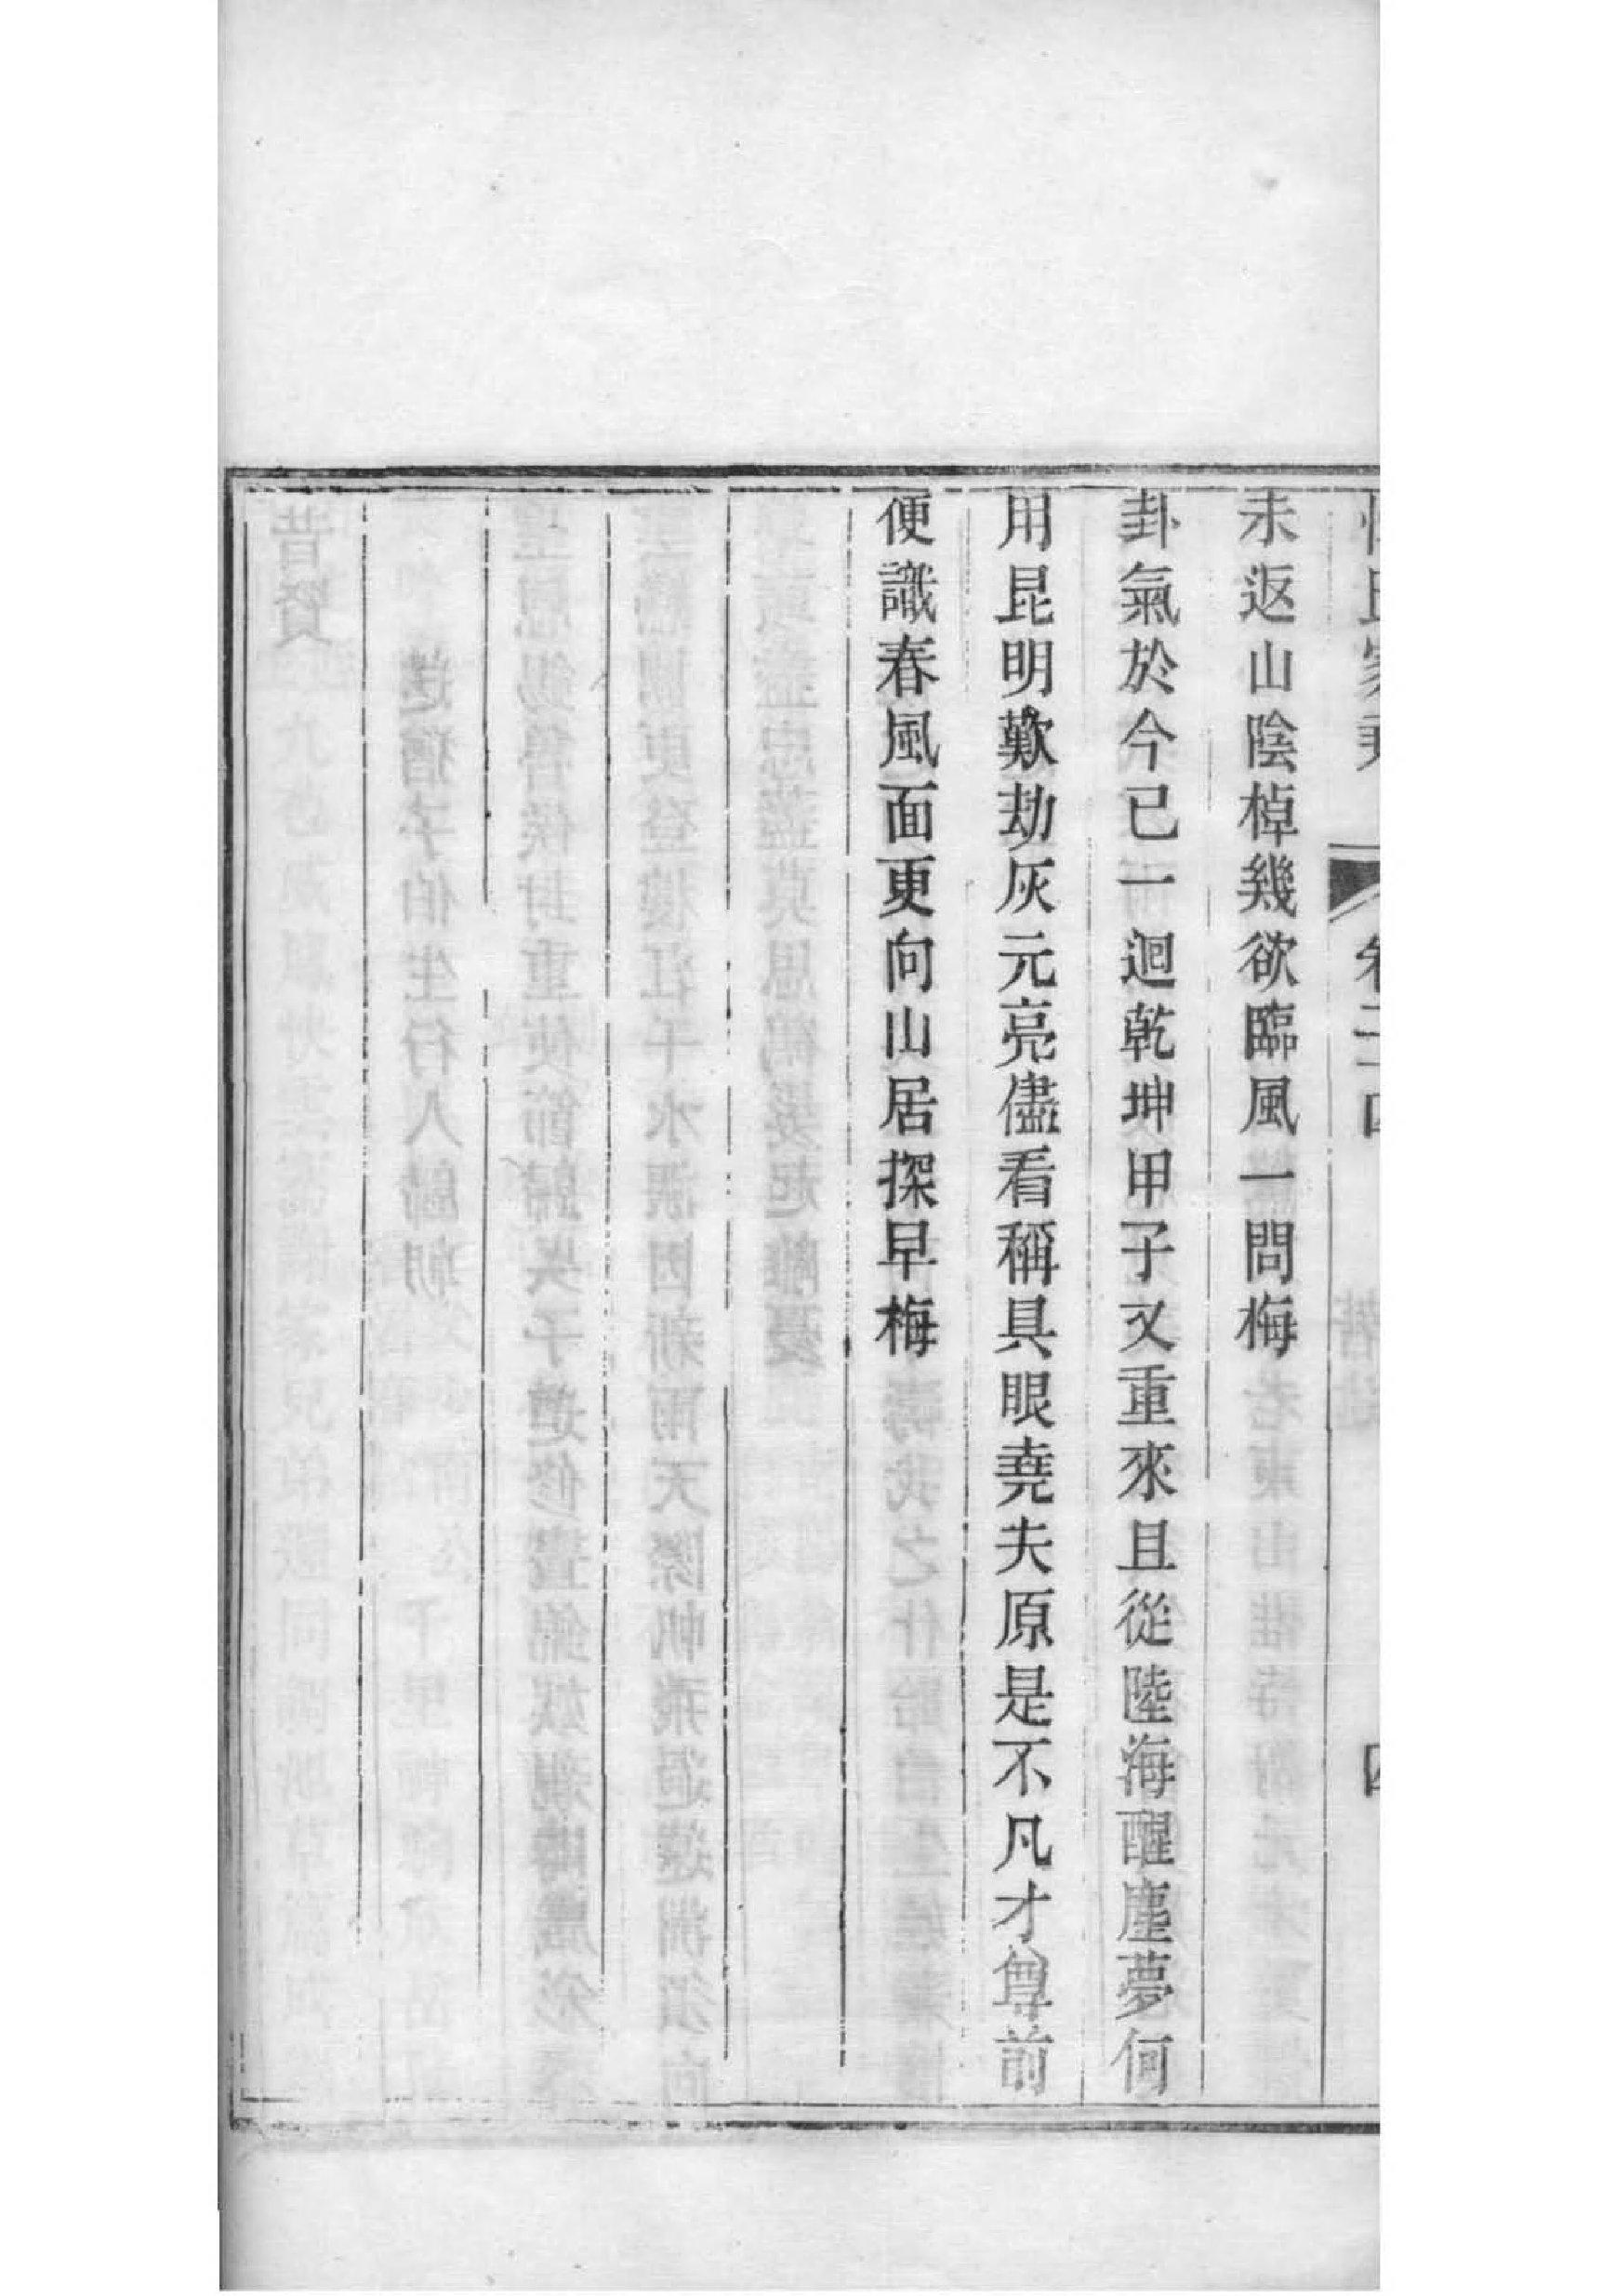 氏家乘 卷二十四 四
未返山陰棹幾欲臨風一問梅
卦氣於今已一迴乾坤甲子又重來且從陸海醒塵夢何
用昆明歎劫灰元亮儘看稱具眼堯夫原是不凡才尊前
便識春風面更向山居探早梅